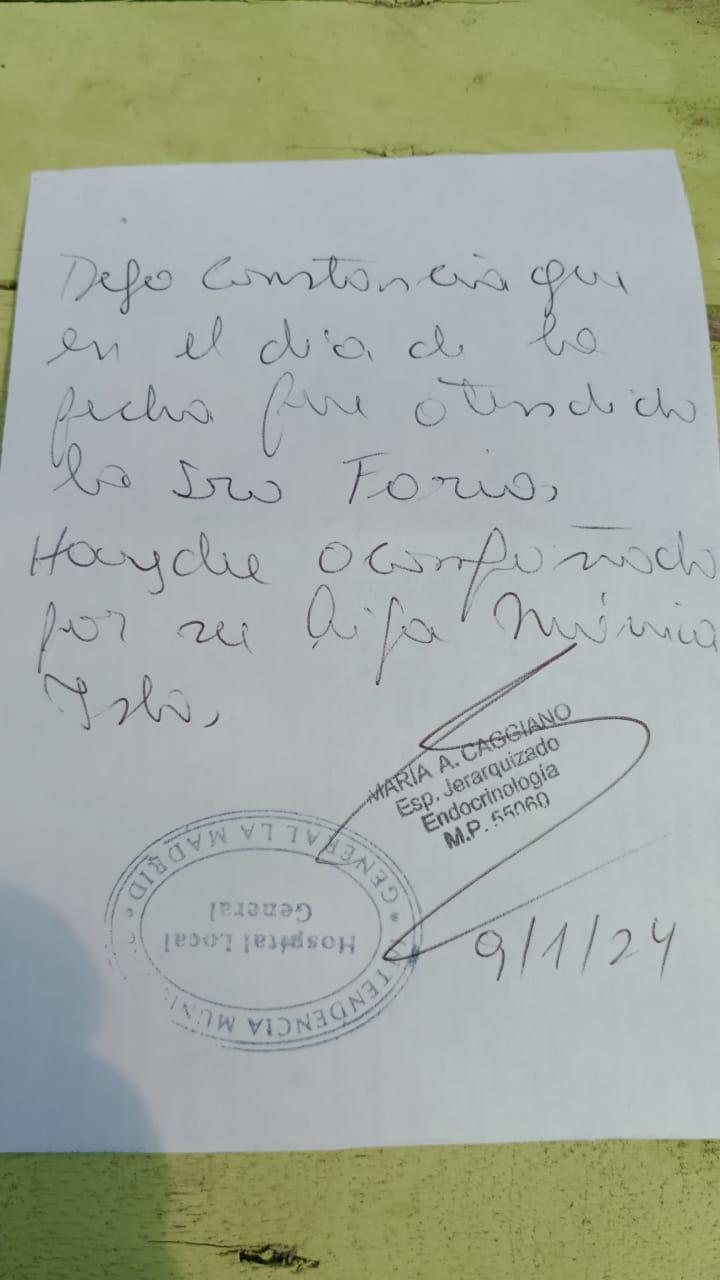 Dejo Constancia que
en el día de la
fecha fue atendida
la Sra Farias,
Haydee acompañada
por su hija Mónica
Isla,
MARIA A. CAGGIANO
Esp. Jerarquizado
Endocrinología
M.P. 55060
GENERAL LA MADRID
Hospital Local
General
TENDENCIA MUNI
9/1/24